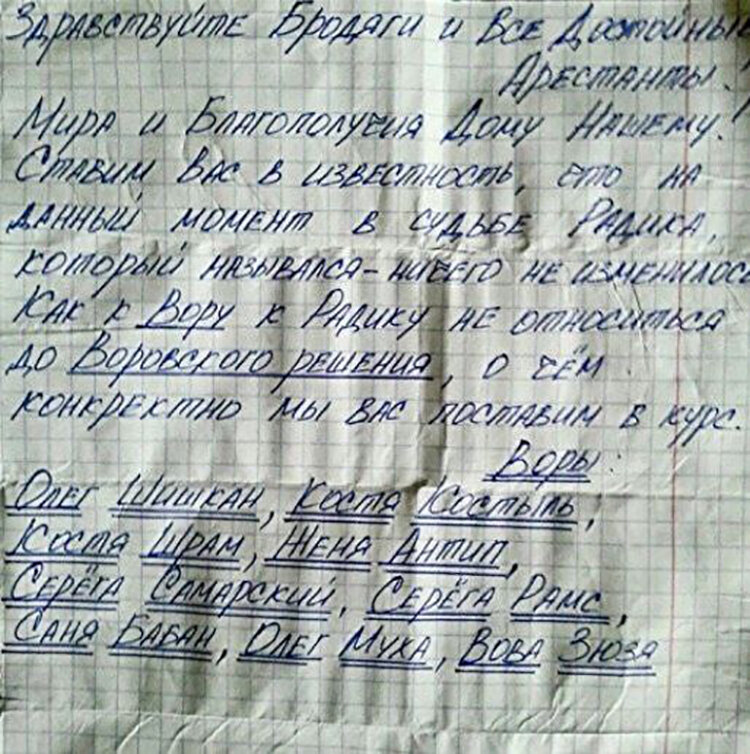 Здравствуйте Бродяги и Все Достойные
Арестанты!
Мира и Благополучия Дому Нашему!
Ставим Вас в известность, что на
данный момент в судьбе Радика,
который назывался-ничего не изменилось
Как к Вору к Радику не относиться
до Воровского решения, о чём
конкректно мы вас поставим в курс.
Воры:
Олег Шишкан, Костя Костыль,
Костя Шрам, Женя Антип,
Серёга Самарский, Серёга Рамс,
Саня Бабан, Олег Муха, Вова Зюзя